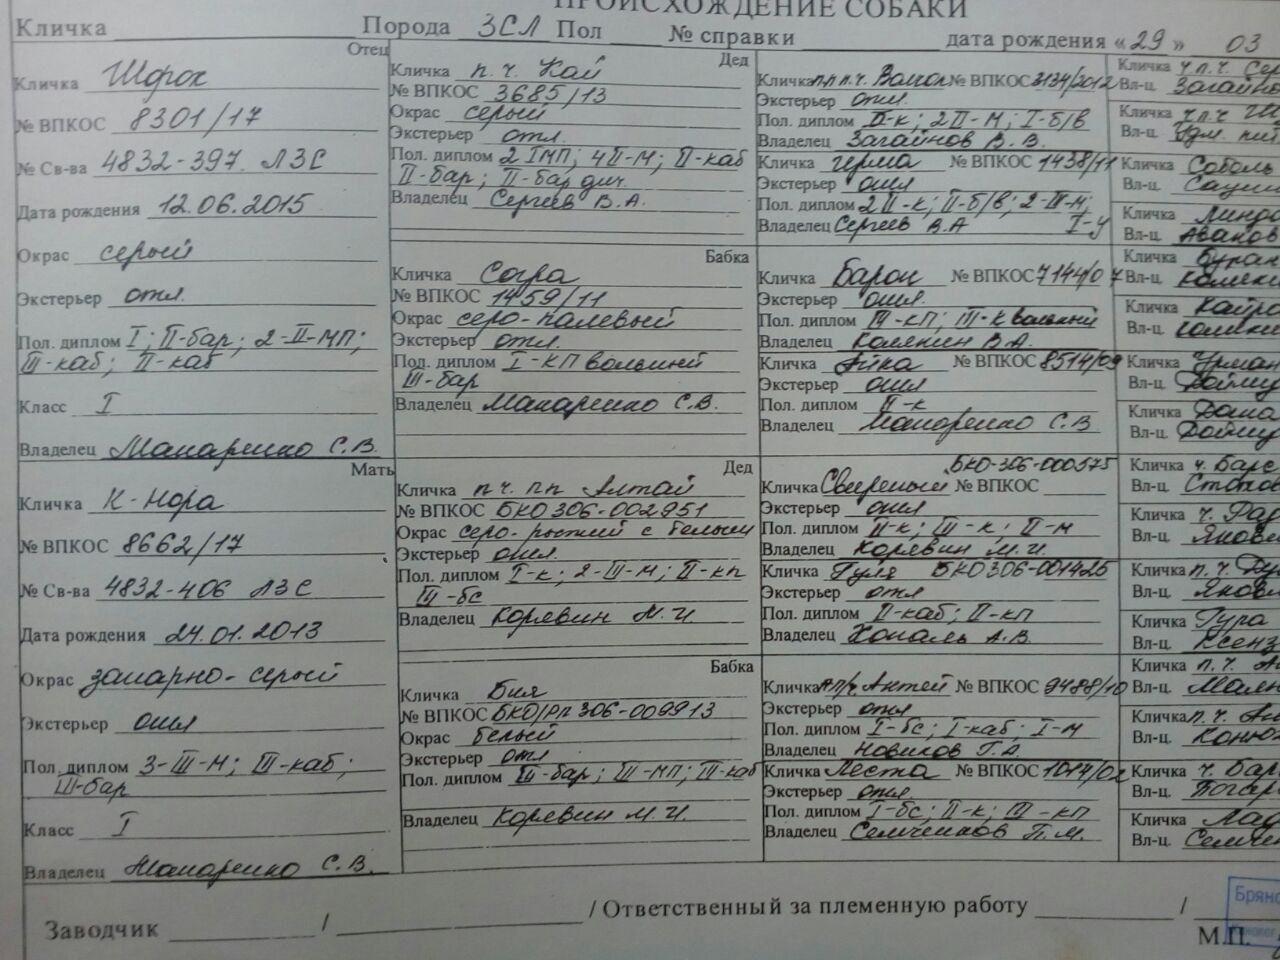 ПРОИСХОЖДЕНИЕ СОБАКИ
Кличка Порода ЗСЛ Пол № справки дата рождения «29» 03
Отец
Кличка Шорох
№ ВПКОС 8301/17
№ Св-ва 4832-397 ЛЗС
Дата рождения 12.06.2015
Окрас серый
Экстерьер отл.
Пол. диплом I; II-бар; 2-II-МП;
III-каб; II-каб
Класс I
Владелец Макаренко С.В.
Мать
Кличка К-Нора
№ ВПКОС 8662/17
№ Св-ва 4832-406 ЛЗС
Дата рождения 24.01.2013
Окрас зонарно-серый
Экстерьер отл
Пол. диплом 3-III-М; III-каб;
III-бар
Класс I
Владелец Макаренко С.В.
Дед
Кличка п.ч. Кай
№ ВПКОС 3685/13
Окрас серый
Экстерьер отл.
Пол. диплом 2 IМП; 4II-М; II-каб
II-бар; II-бар дич.
Владелец Сергеев В.А.
Бабка
Кличка Согра
№ ВПКОС 1459/11
Окрас серо-палевый
Экстерьер отл.
Пол. диплом I-КП вольный
III-бар
Владелец Макаренко С.В.
Дед
Кличка пч. пп Алтай
№ ВПКОС БКО 306-002951
Окрас серо-рыжий с белым
Экстерьер отл.
Пол. диплом I-к; 2-III-М; II-кп
III-бс
Владелец Корявин М.И.
Бабка
Кличка Бия
№ ВПКОС БКО/РП 306-009913
Окрас белый
Экстерьер отл
Пол. диплом III-бар; III-МП; III-каб
Владелец Корявин М.И.
Кличка п.п.ч. № ВПКОС 3134/2012
Экстерьер отл.
Пол. диплом II-к; 2II-М; I-б/в
Владелец Загайнов В.В.
Кличка Герта № ВПКОС 1438/11
Экстерьер отл
Пол. диплом 2II-к; II-б/в; 2-III-М;
Владелец Сергеев В.А I-у
Кличка Барон № ВПКОС 7144/07
Экстерьер отл.
Пол. диплом III-КП; III-К вольный
Владелец Колякин В.А.
Кличка Айка № ВПКОС 8514/09
Экстерьер отл
Пол. диплом II-к
Владелец Макаренко С.В
БКО-306-000575
Кличка Свирепый № ВПКОС
Экстерьер отл
Пол. диплом II-к; III-к; II-М
Владелец Корявин М.И.
Кличка Гуля БКО306-001425
Экстерьер отл
Пол. диплом II-каб; II-кп
Владелец Коваль А.В.
Кличка Антей № ВПКОС 9488/10
Экстерьер отл
Пол. диплом I-бс; I-каб; I-М
Владелец Новиков Г.А
Кличка Леста № ВПКОС 1014/02
Экстерьер отл.
Пол. диплом I-бс; II-к; III-кп
Владелец Семченков П.М.
Кличка ч.п.ч. Сер
Вл-ц. Загайно
Кличка ч.п.ч
Вл-ц. Удм. пит
Кличка Соболь
Вл-ц.
Кличка Линда
Вл-ц. Аванов
Кличка Буран
Вл-ц. Колякин
Кличка
Вл-ц.
Кличка Урман
Вл-ц.
Кличка Дана
Вл-ц.
Кличка ч. Барс
Вл-ц.
Кличка ч.
Вл-ц. Яковл
Кличка п.ч.
Вл-ц. Яковл
Кличка Гура
Вл-ц. Ксенз
Кличка п.ч.
Вл-ц.
Кличка п.ч.
Вл-ц.
Кличка ч. Бар
Вл-ц.
Кличка Лад
Вл-ц. Семчен
Заводчик / / Ответственный за племенную работу /
Брянс
М.П.